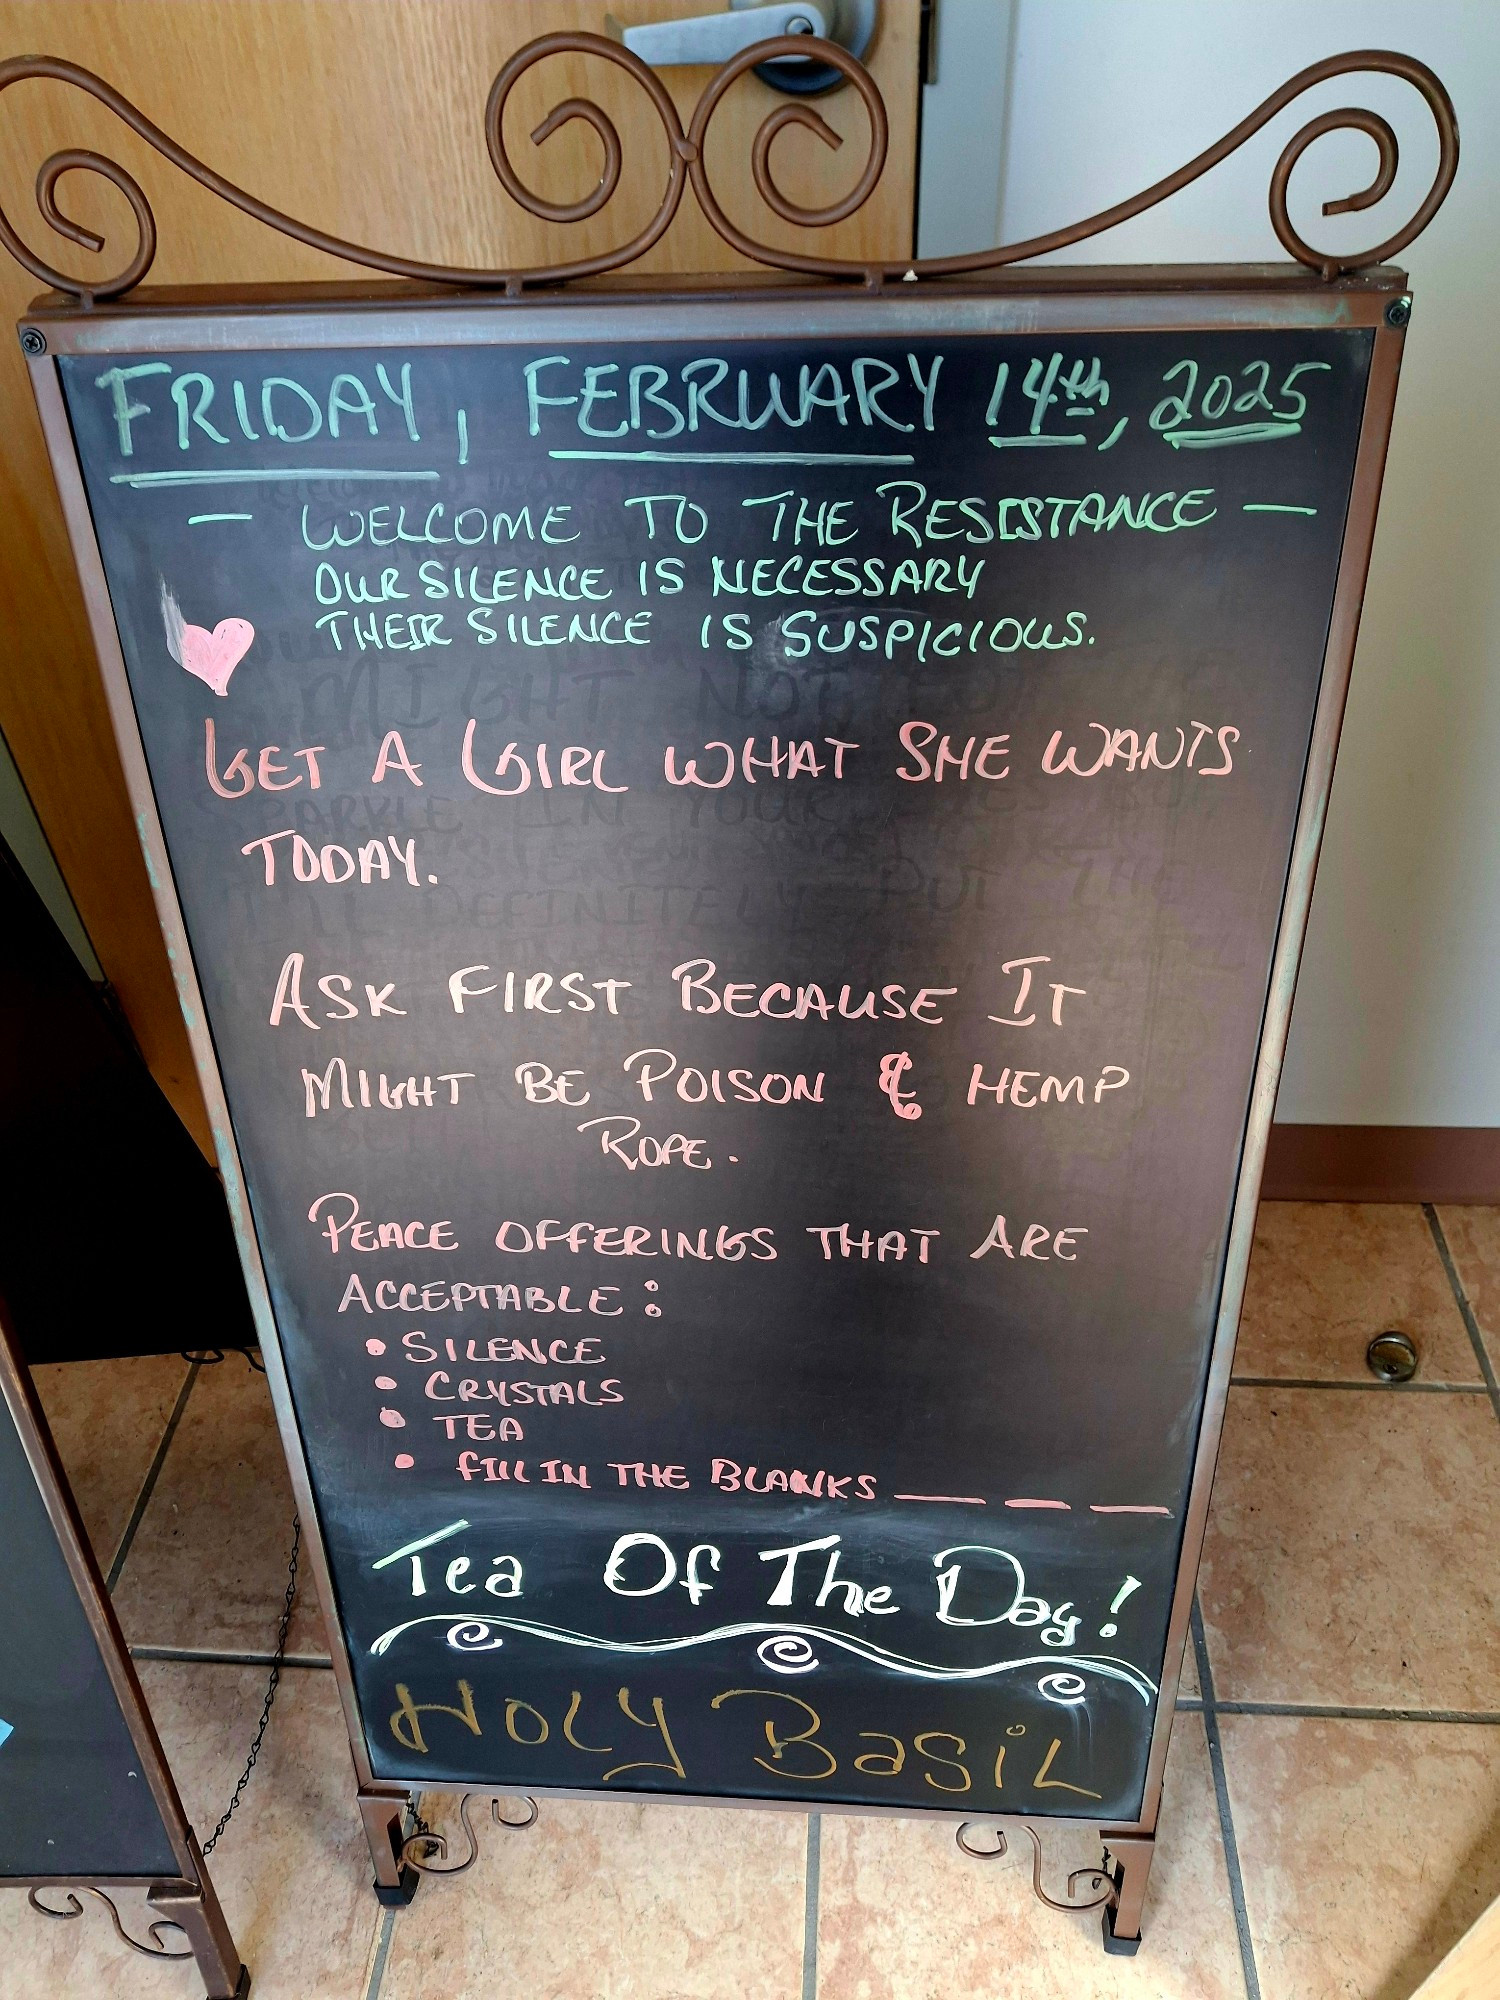 FRIDAY, FEBRUARY 14th, 2025
— WELCOME TO THE RESISTANCE —
OUR SILENCE IS NECESSARY
THEIR SILENCE IS SUSPICIOUS.
GET A GIRL WHAT SHE WANTS
TODAY.
ASK FIRST BECAUSE IT
MIGHT BE POISON & HEMP
ROPE.
PEACE OFFERINGS THAT ARE
ACCEPTABLE:
• SILENCE
• CRYSTALS
• TEA
• FILL IN THE BLANKS ___ ___ ___
Tea Of The Day!
HOLY BasiL